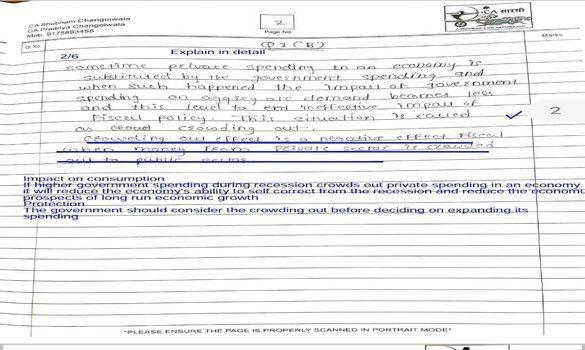 CA Shubham Changoiwala
CA Pradnya Changoiwala
Mob. 9175893455
2
Page No.
CA सारथी
Q No
Marks
Q 1 (B)
2/6 Explain in detail
sometime private spending in an economy is
substituted by the government spending and
when such happened the impact of government
spending on aggregate demand becomes less
and this lead to an ineffective impact of
Fiscal policy. This situation is called
as crowding out.
2
Crowding out effect is a negative effect Fiscal
when money from Private sector is crowded
out to public sector
Impact on consumption
If higher government spending during recession crowds out private spending in an economy
it will reduce the economy's ability to self correct from the recession and reduce the economi
prospects of long run economic growth
Protection
The government should consider the crowding out before deciding on expanding its
spending
*PLEASE ENSURE THE PAGE IS PROPERLY SCANNED IN PORTRAIT MODE*